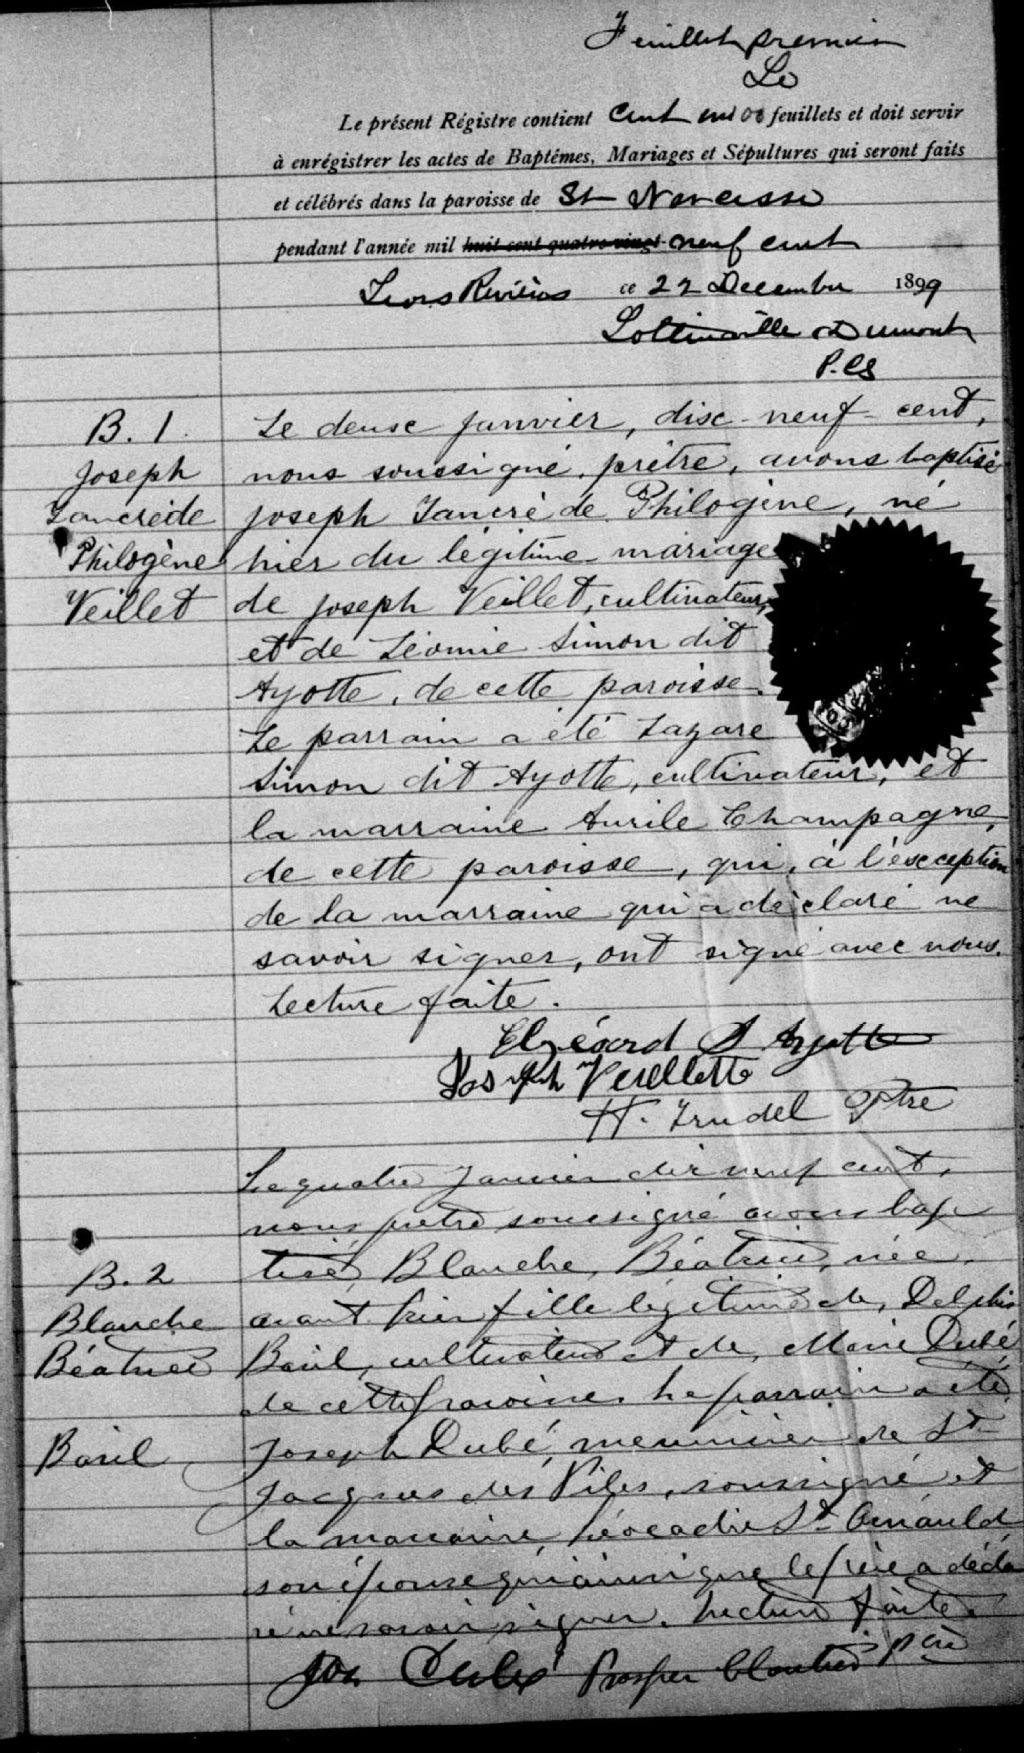 Feuillet premier
Le
Le présent Régistre contient cent feuillets et doit servir
à enrégistrer les actes de Baptêmes, Mariages et Sépultures qui seront faits
et célébrés dans la paroisse de St Narcisse
pendant l'année mil huit cent quatre-vingt neuf cent
Trois Rivières ce 22 Decembre 1899
Lottinville & Dumont
P.CS
B. 1.
Joseph
Tancrède
Philogène
Veillet
Le deux janvier, dix-neuf-cent,
nous soussigné, prêtre, avons baptisé
Joseph Tancrède Philogène, né
hier du légitime mariage
de Joseph Veillet, cultivateur,
et de Léonie Simon dit
Ayotte, de cette paroisse.
Le parrain a été Lazare
Simon dit Ayotte, cultivateur, et
la marraine Aurile Champagne,
de cette paroisse, qui, à l'exception
de la marraine qui a déclaré ne
savoir signer, ont signé avec nous.
Lecture faite.
Elzéard S Ayotte
Joseph Veillette
H. Trudel Ptre
Le quatre Janvier dix neuf cent,
nous, prêtre soussigné avons bap
B. 2
Blanche
Béatrice
Baril
tisé, Blanche, Béatrice, née,
avant hier fille légitime de, Delphis
Baril, cultivateur et de, Marie Dubé
de cette paroisse. Le parrain a été
Joseph Dubé, meunier de St
Jacques des Piles, soussigné et
la marraine, Léocadie St Arnauld
son épouse qui ainsi que le père a décla
ré ne savoir signer. Lecture faite.
Jos Dubé Prosper Cloutier ptre